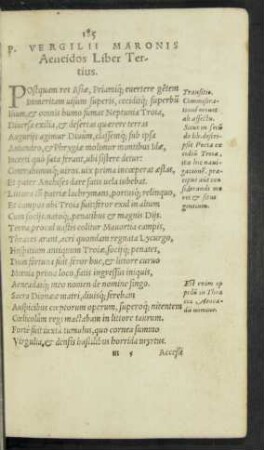 185
P. VERGILII MARONIS
Aeneidos Liber Ter-
tius.
POstquam res Asiæ, Priamiq; euertere gẽtem
Immeritam uisum superis, ceciditq; superbũ
Ilium, & omnis humo fumat Neptunia Troia,
Diuersa exilia, & desertas quærere terras
Augurijs agimur Diuũm, classemq; sub ipsa
Antandro, & Phrygiæ molimur montibus Idæ,
Incerti quò fata ferant, ubi sistere detur:
Contrahimusq; uiros. uix prima inceperat æstas,
Et pater Anchises dare fatis uela iubebat.
Litora cũ patriæ lachrymans, portusq; relinquo,
Et campos ubi Troia fuit. feror exul in altum
Cum socijs, natoq;, penatibus & magnis Dijs.
Terra procul uastis colitur Mauortia campis,
Thraces arant, acri quondam regnata Lycurgo,
Hospitium antiquum Troiæ, socijq; penates,
Dum fortuna fuit. feror huc, & littore curuo
Mœnia prima loco, fatis ingressus iniquis,
Aeneadasq; meo nomen de nomine fingo.
Sacra Dionææ matri, diuisq; ferebam
Auspicibus cœptorum operum, superoq; nitentem
Cœlicolûm regi mactabam in littore taurum.
Fortè fuit iuxta tumulus, quo cornea summo
Virgulta, & densis hastilibus horrida myrtus.
m 5 Accessi
Transitio.
ab affectu.